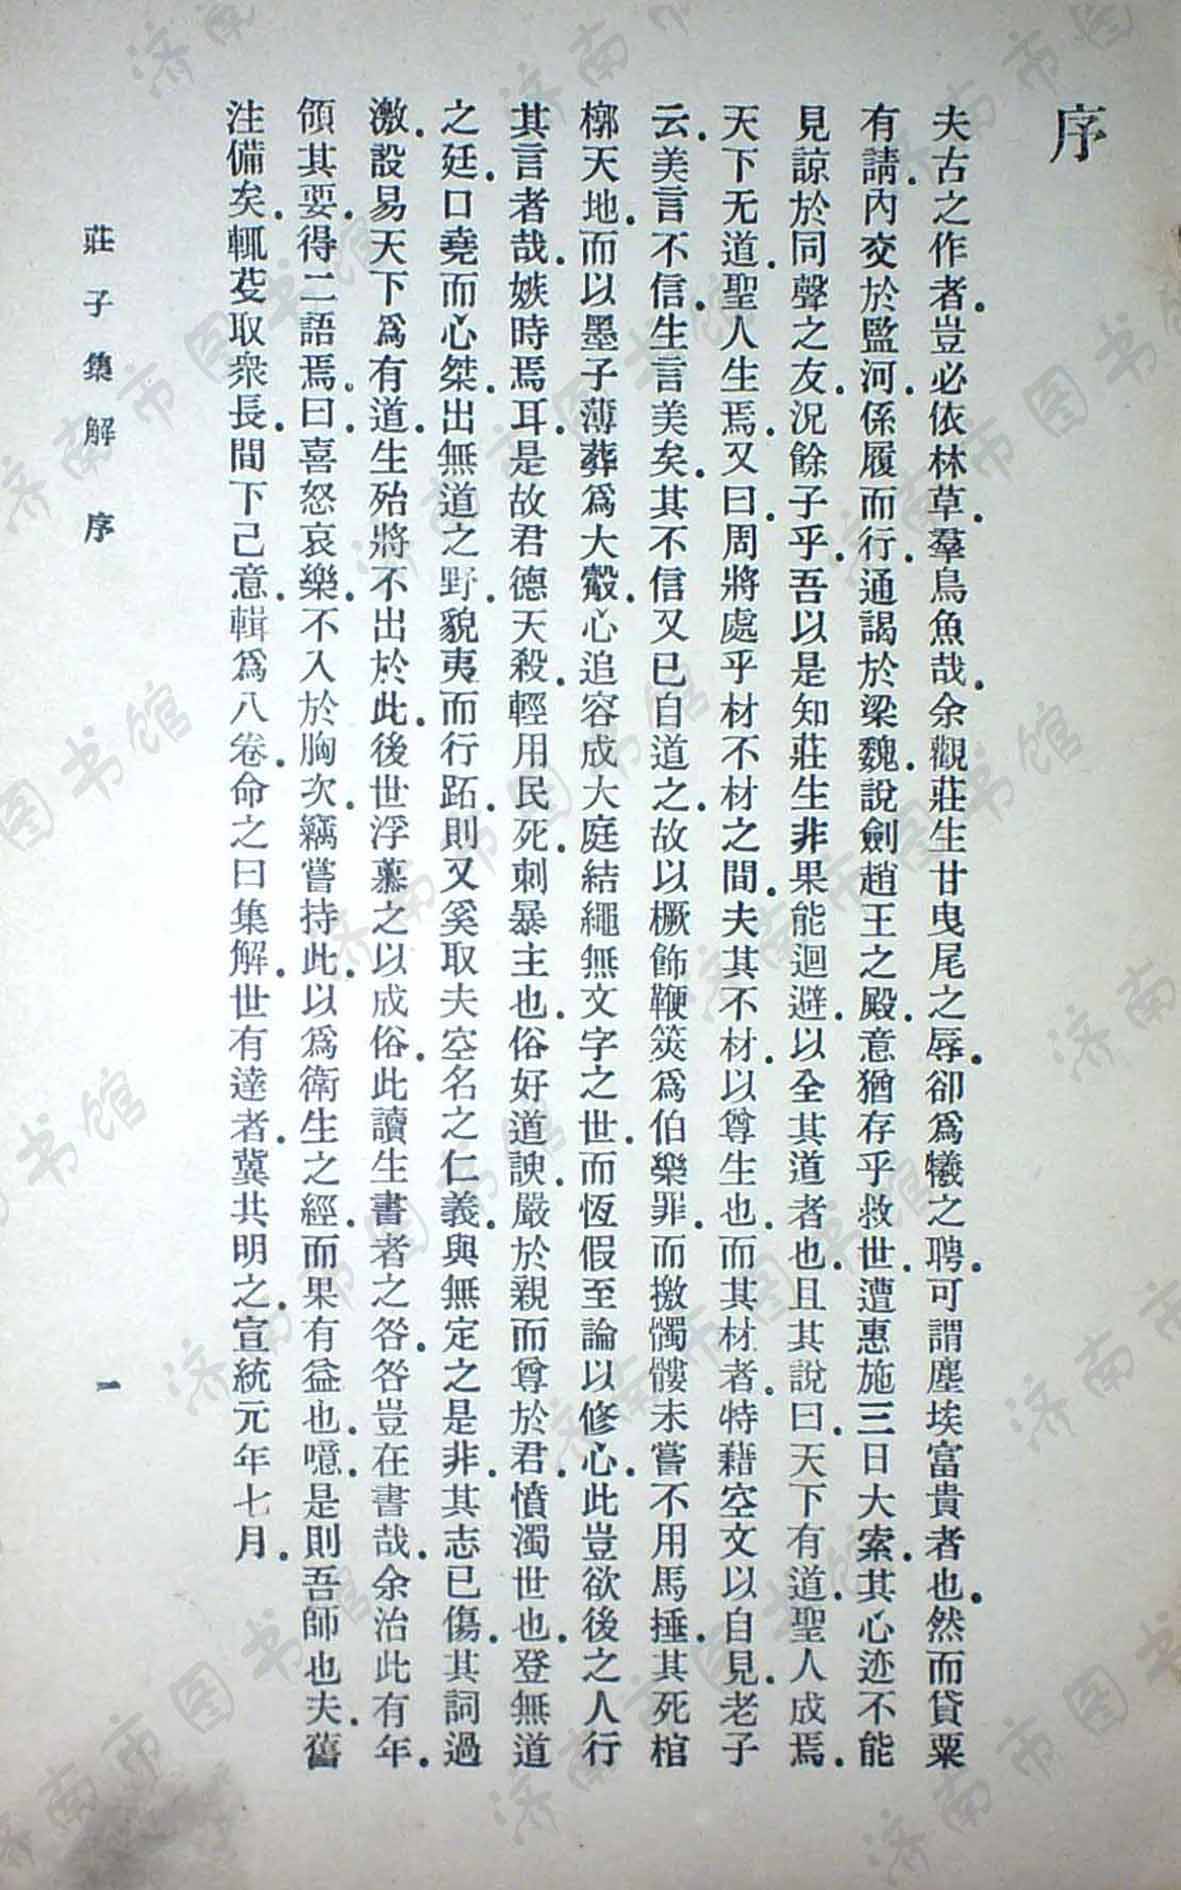 序
夫古之作者.豈必依林草.羣鳥魚哉.余觀莊生甘曳尾之辱.卻爲犧之聘.可謂塵埃富貴者也.然而貸粟
有請.內交於監河.係履而行.通謁於梁魏.說劍趙王之殿.意猶存乎救世.遭惠施三日大索.其心迹不能
見諒於同聲之友.況餘子乎.吾以是知莊生非果能迴避.以全其道者也.且其說曰.天下有道.聖人成焉.
天下无道.聖人生焉.又曰.周將處乎材不材之間.夫其不材.以尊生也.而其材者.特藉空文以自見.老子
云.美言不信.生言美矣.其不信又已自道之.故以橛飾鞭筴爲伯樂罪.而撽髑髏未嘗不用馬捶.其死棺
槨天地.而以墨子薄葬爲大觳.心追容成大庭結繩無文字之世.而恆假至論以修心.此豈欲後之人行
其言者哉.嫉時焉耳.是故君德天殺.輕用民死.刺暴主也.俗好道諛.嚴於親而尊於君.憤濁世也.登無道
之廷.口堯而心桀.出無道之野.貌夷而行跖.則又奚取夫空名之仁義.與無定之是非.其志已傷.其詞過
激.設易天下爲有道.生殆將不出於此.後世浮慕之以成俗.此讀生書者之咎.咎豈在書哉.余治此有年.
領其要.得二語焉.曰.喜怒哀樂.不入於胸次.竊嘗持此.以爲衛生之經.而果有益也.噫.是則吾師也夫.舊
注備矣.輒芟取衆長.間下己意.輯爲八卷.命之曰集解.世有達者.冀共明之.宣統元年七月.
莊子集解 序
一
济南市图书馆